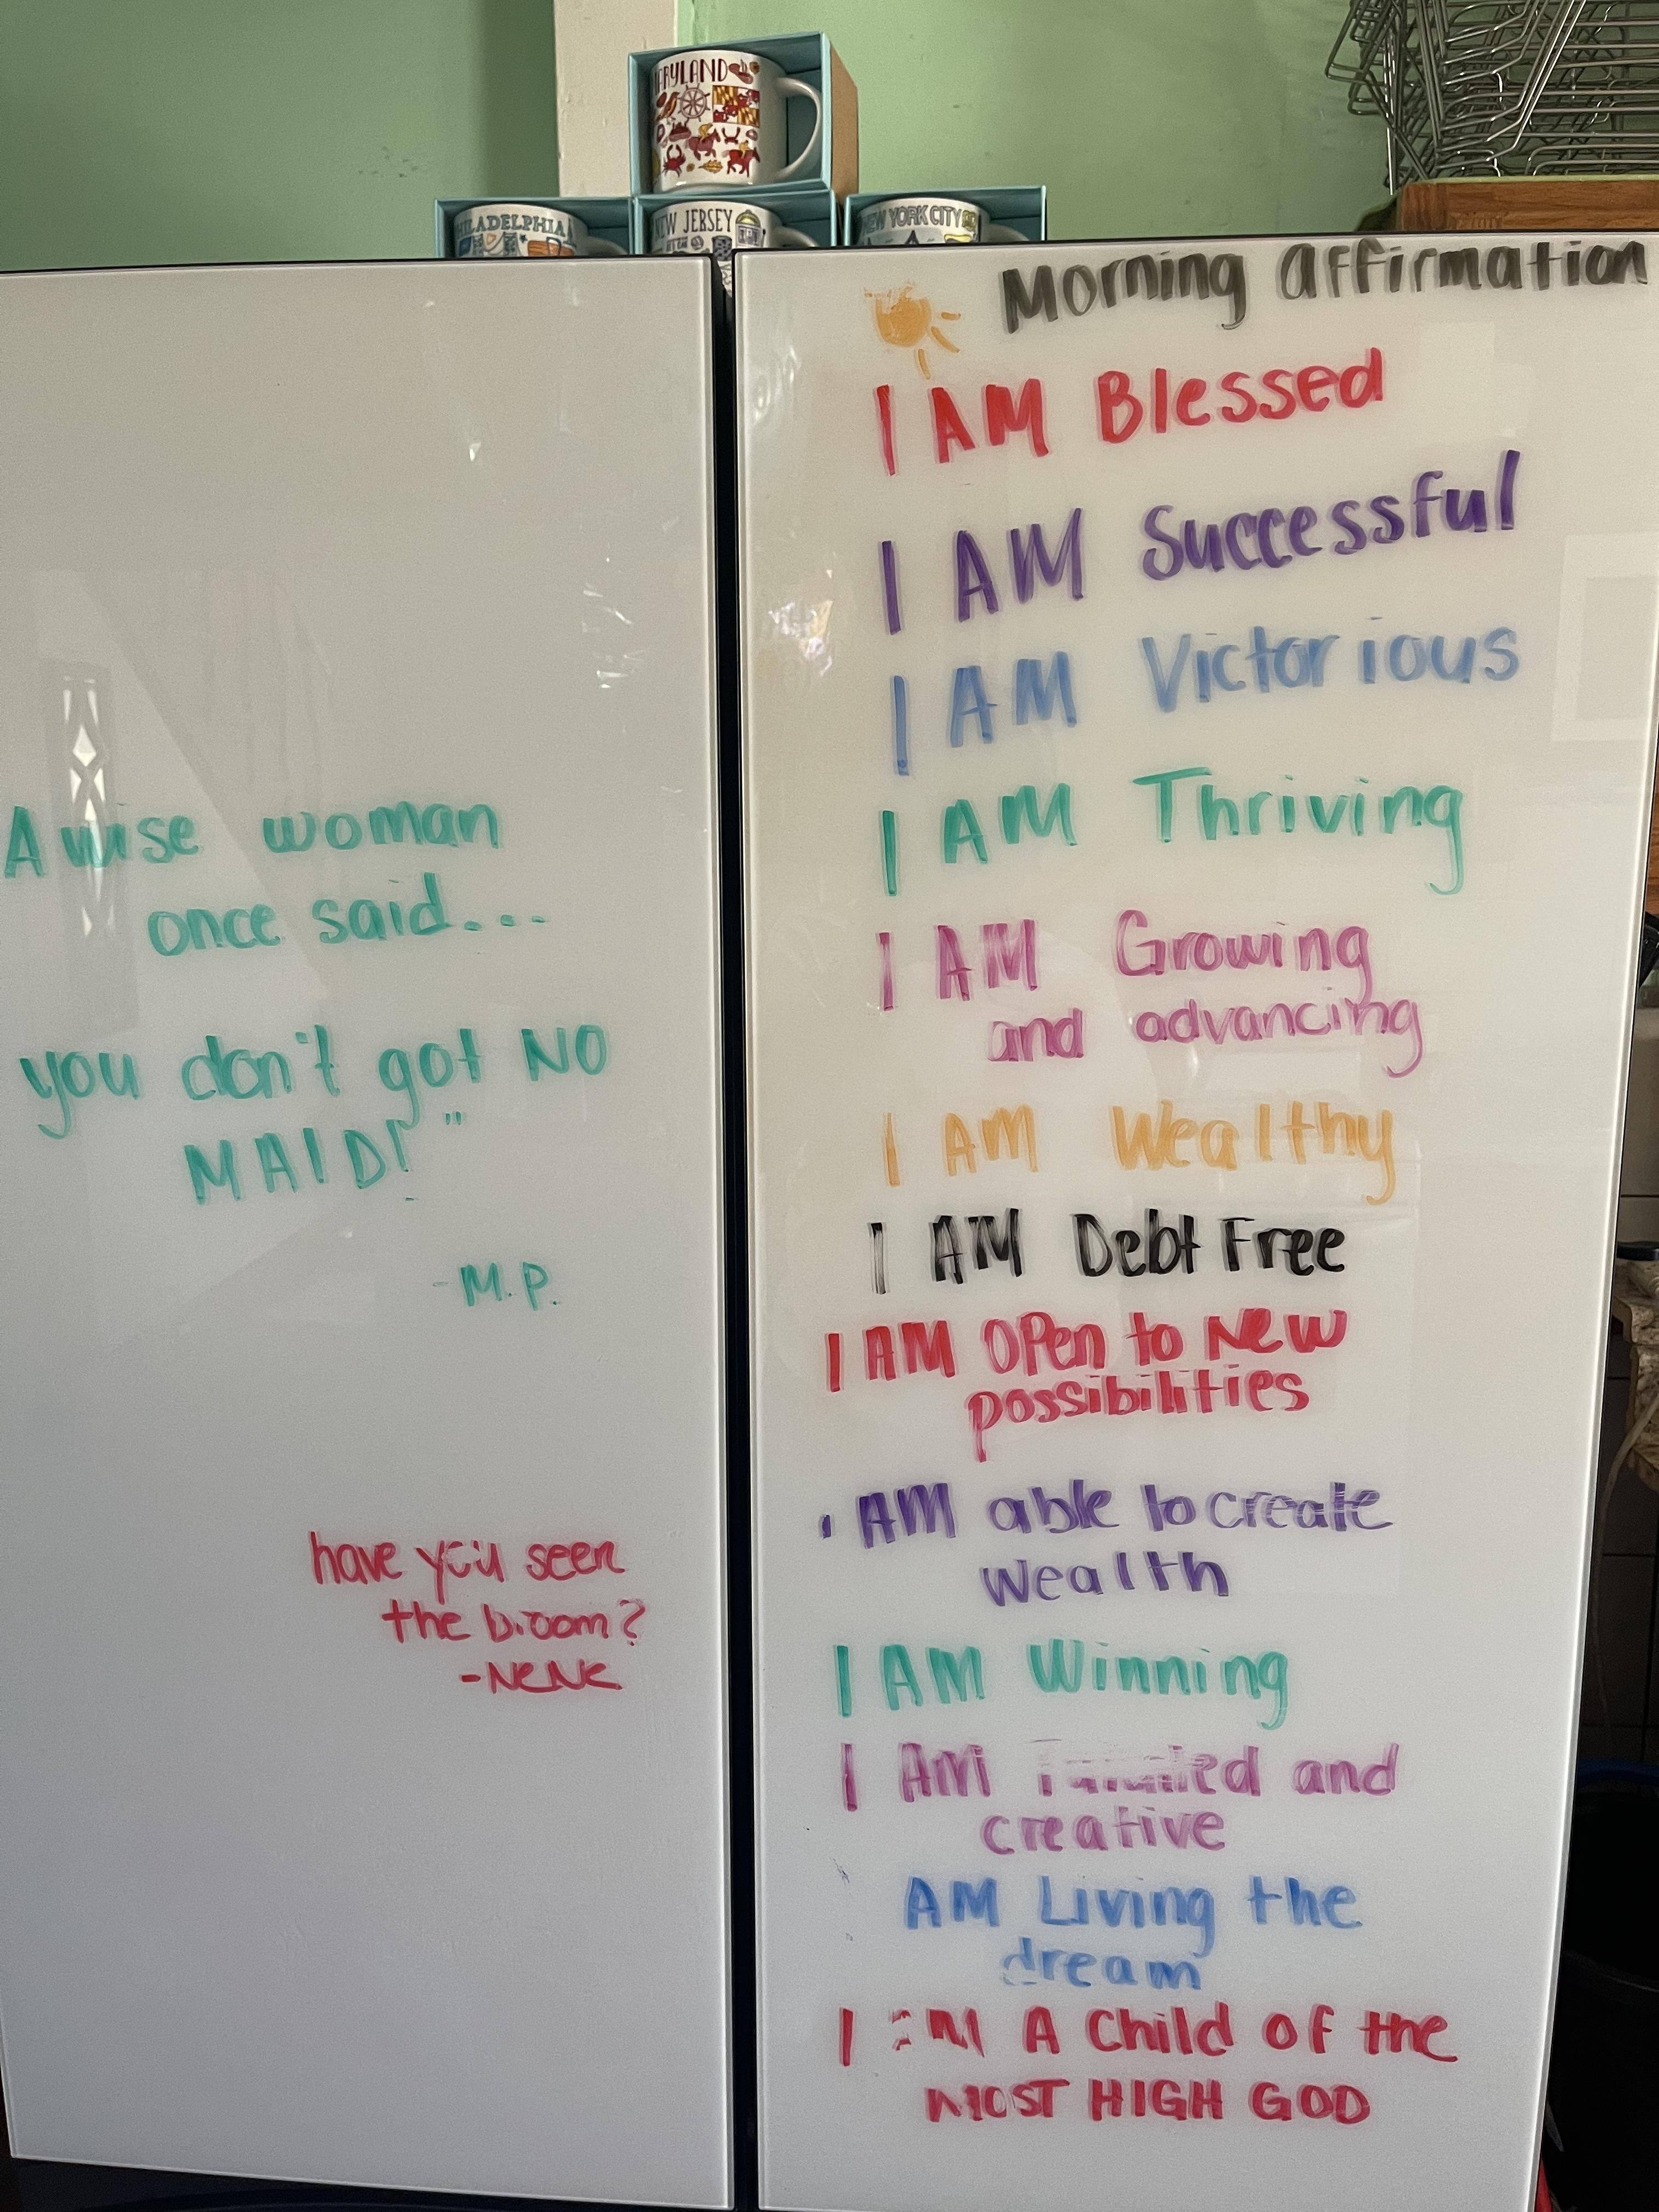 MARYLAND
PHILADELPHIA
NEW JERSEY
NEW YORK CITY
A wise woman
once said...
you don't got NO
MAID!"
-M.P.
have you seen
the broom?
-NENE
Morning affirmation
I AM Blessed
I AM Successful
I AM Victorious
I AM Thriving
I AM Growing
and advancing
I AM Wealthy
I AM Debt Free
I AM OPen to New
possibilities
I AM able to create
wealth
I AM Winning
I AM Talented and
creative
AM Living the
dream
I AM A Child of the
MOST HIGH GOD